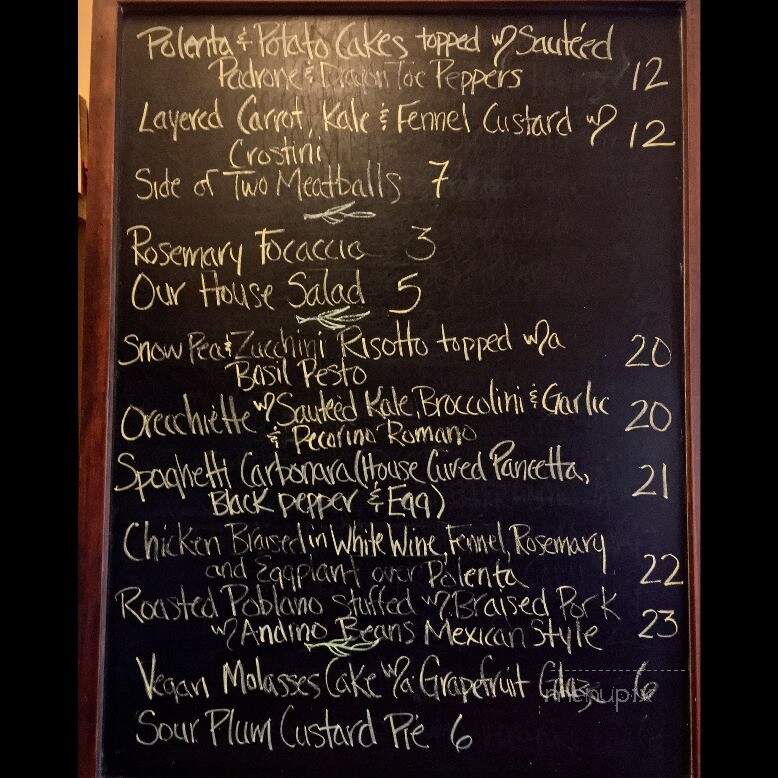 Polenta & Potato Cakes topped w/ Sautéed
Padrone & Dragon Toe Peppers 12
Layered Carrot, Kale & Fennel Custard w/ 12
Crostini
Side of Two Meatballs 7
Rosemary Focaccia 3
Our House Salad 5
Snow Pea & Zucchini Risotto topped w/a 20
Basil Pesto
Orecchiette w/ Sautéed Kale, Broccolini & Garlic 20
& Pecorino Romano
Spaghetti Carbonara (House Cured Pancetta, 21
Black pepper & Egg)
Chicken Braised in White Wine, Fennel, Rosemary
and Eggplant over Polenta 22
Roasted Poblano Stuffed w/ Braised Pork 23
w/ Andino Beans Mexican Style
Vegan Molasses Cake w/a Grapefruit Glaze 6
menupix
Sour Plum Custard Pie 6